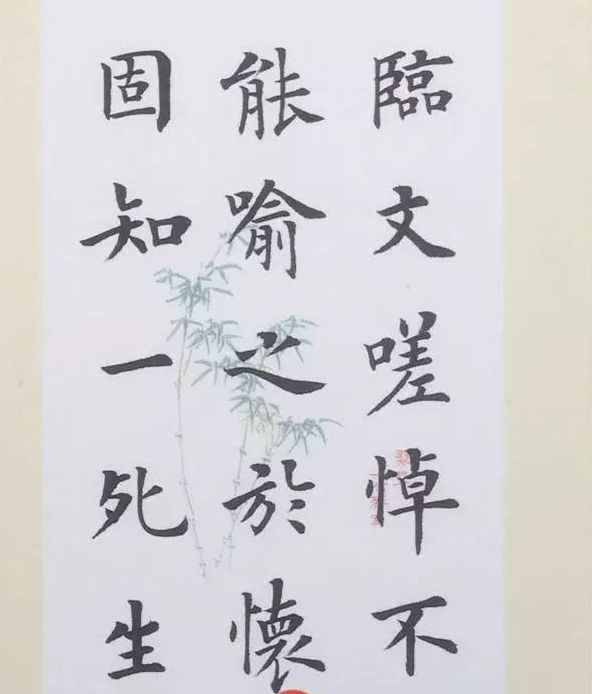 臨文嗟悼不
能喻之於懷
固知一死生